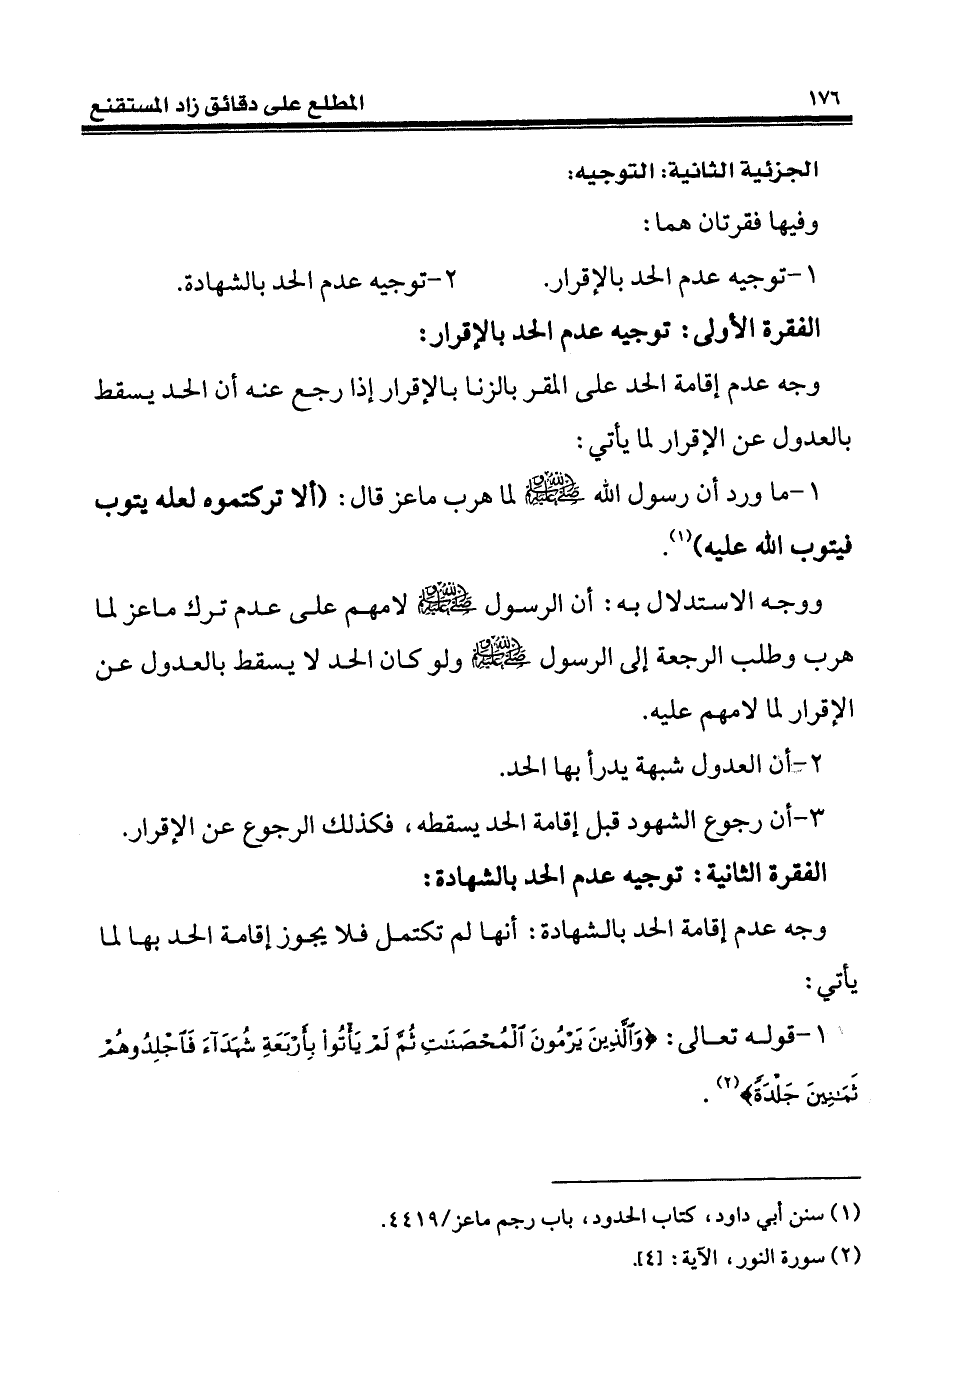 ١٧٦ المطلع على دقائق زاد المستقنع
الجزئية الثانية: التوجيه:
وفيها فقرتان هما:
١-توجيه عدم الحد بالإقرار. ٢-توجيه عدم الحد بالشهادة.
الفقرة الأولى: توجيه عدم الحد بالإقرار:
وجه عدم إقامة الحد على المقر بالزنا بالإقرار إذا رجع عنه أن الحد يسقط
بالعدول عن الإقرار لما يأتي:
١-ما ورد أن رسول الله ﷺ لما هرب ماعز قال: (ألا تركتموه لعله يتوب
فيتوب الله عليه)(١).
ووجه الاستدلال به: أن الرسول ﷺ لامهم على عدم ترك ماعز لما
هرب وطلب الرجعة إلى الرسول ﷺ ولو كان الحد لا يسقط بالعدول عن
الإقرار لما لامهم عليه.
٢-أن العدول شبهة يدرأ بها الحد.
٣-أن رجوع الشهود قبل إقامة الحد يسقطه، فكذلك الرجوع عن الإقرار.
الفقرة الثانية: توجيه عدم الحد بالشهادة:
وجه عدم إقامة الحد بالشهادة: أنها لم تكتمل فلا يجوز إقامة الحد بها لما
يأتي:
١-قوله تعالى: ﴿وَٱلَّذِينَ يَرْمُونَ ٱلْمُحْصَنَٰتِ ثُمَّ لَمْ يَأْتُوا۟ بِأَرْبَعَةِ شُهَدَآءَ فَٱجْلِدُوهُمْ
ثَمَٰنِينَ جَلْدَةً﴾(٢).
(١) سنن أبي داود، كتاب الحدود، باب رجم ماعز/٤٤١٩.
(٢) سورة النور، الآية: [٤].